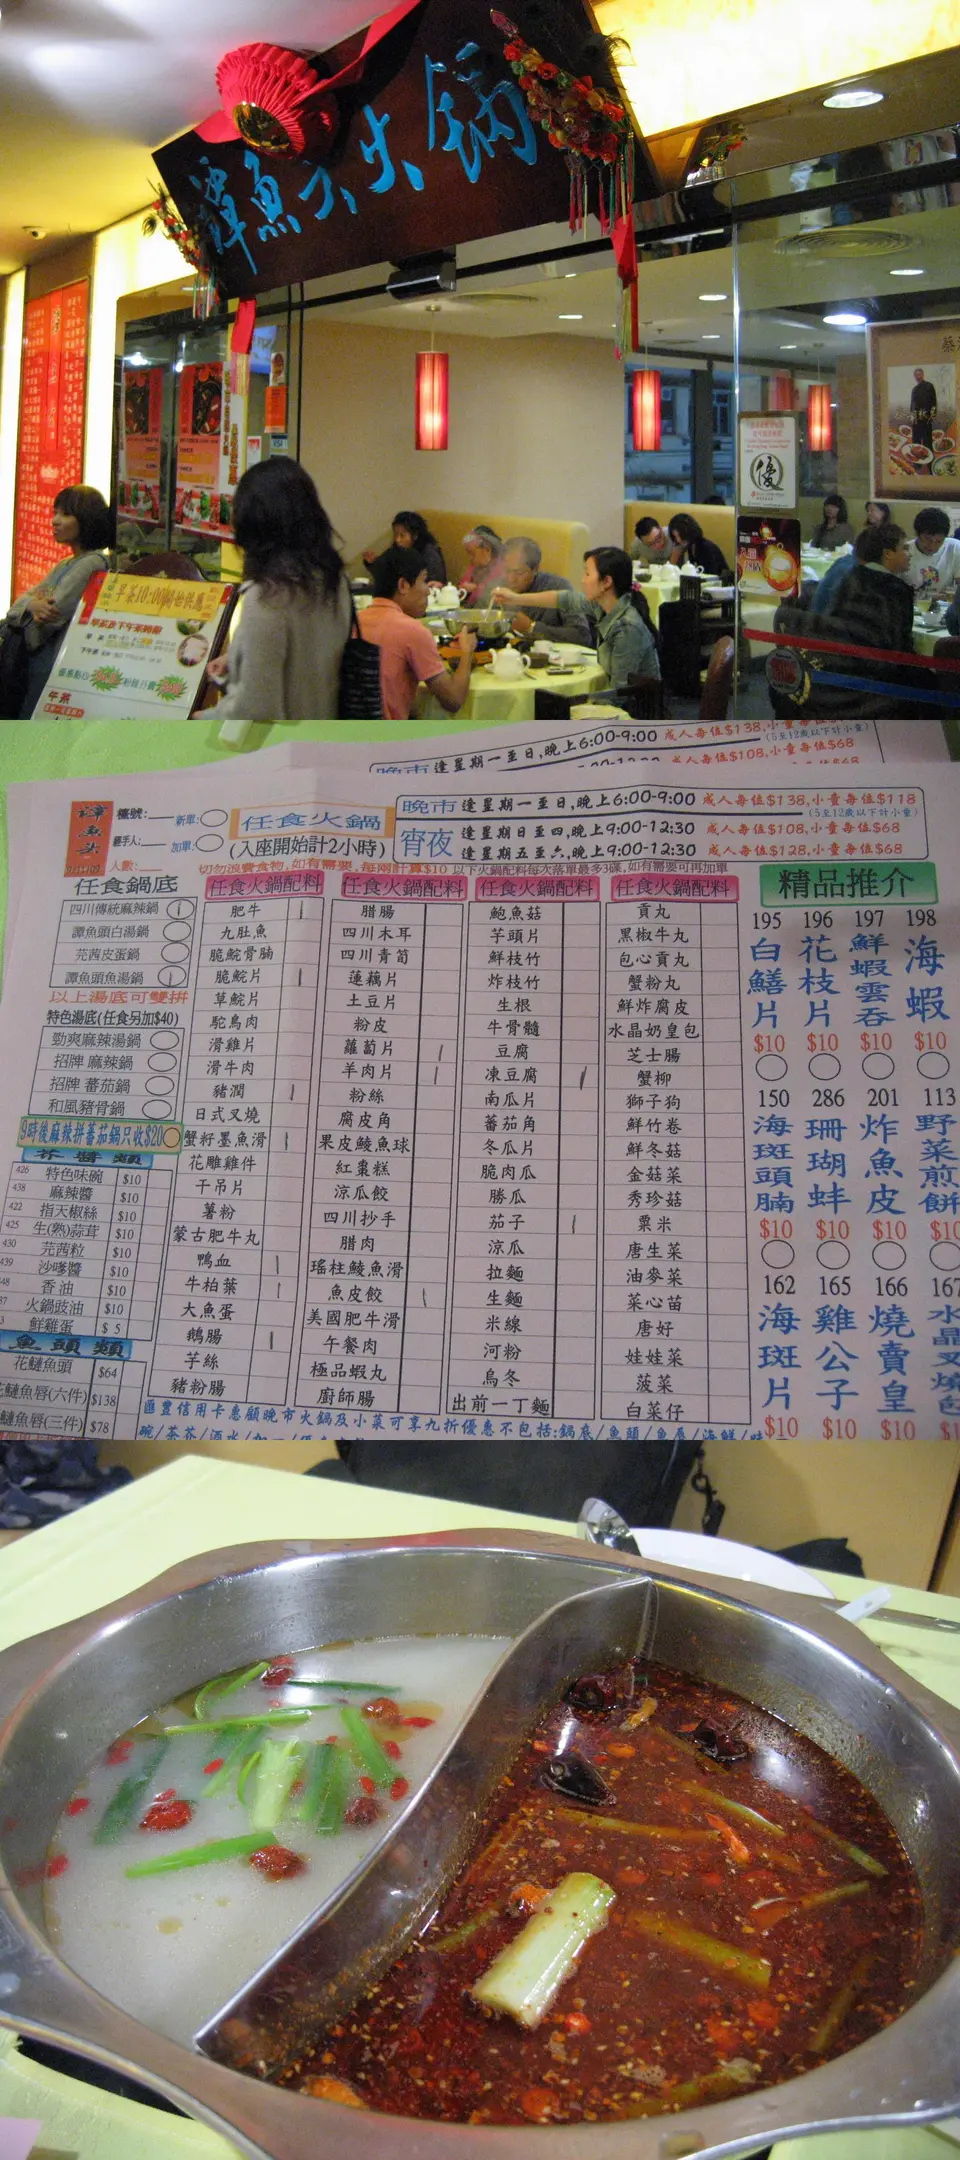 譚魚头火鍋
平茶10:00開始供應
下午茶
午茶
優
晚市 逢星期一至日,晚上6:00-9:00 成人每位$138,小童每位$118
(5至12歲以下計小童)
宵夜 逢星期日至四,晚上9:00-12:30 成人每位$108,小童每位$68
逢星期五至六,晚上9:00-12:30 成人每位$128,小童每位$68
譚魚头
檯號:
新單:
經手人:
加單:
人數:
任食火鍋
(入座開始計2小時)
切勿浪費食物,如有需要,每兩計算$10 以下火鍋配料每次落單最多3碟,如有需要可再加單
任食鍋底
四川傳統麻辣鍋
譚魚頭白湯鍋
芫茜皮蛋鍋
譚魚頭魚湯鍋
以上湯底可雙拼
特色湯底(任食另加$40)
勁爽麻辣湯鍋
招牌 麻辣鍋
招牌 蕃茄鍋
和風豬骨鍋
9時後麻辣拼蕃茄鍋只收$20
426 特色味碗 $10
438 麻辣醬 $10
422 指天椒絲 $10
425 生(熟)蒜茸 $10
430 芫茜粒 $10
439 沙嗲醬 $10
香油 $10
火鍋豉油 $10
鮮雞蛋 $5
魚頭類
花鰱魚頭 $64
花鰱魚唇(六件) $138
鰱魚唇(三件) $78
任食火鍋配料
肥牛
九肚魚
脆鯇骨腩
脆鯇片
草鯇片
鴕鳥肉
滑雞片
滑牛肉
豬潤
日式叉燒
蟹籽墨魚滑
花雕雞件
干吊片
薯粉
蒙古肥牛丸
鴨血
牛柏葉
大魚蛋
鵝腸
芋絲
豬粉腸
任食火鍋配料
腊腸
四川木耳
四川青筍
蓮藕片
土豆片
粉皮
蘿蔔片
羊肉片
粉絲
腐皮角
果皮鯪魚球
紅棗糕
涼瓜餃
四川抄手
腊肉
瑤柱鯪魚滑
魚皮餃
美國肥牛滑
午餐肉
極品蝦丸
廚師腸
任食火鍋配料
鮑魚菇
芋頭片
鮮枝竹
炸枝竹
生根
牛骨髓
豆腐
凍豆腐
南瓜片
蕃茄角
冬瓜片
脆肉瓜
勝瓜
茄子
涼瓜
拉麵
生麵
米線
河粉
烏冬
出前一丁麵
任食火鍋配料
貢丸
黑椒牛丸
包心貢丸
蟹粉丸
鮮炸腐皮
水晶奶皇包
芝士腸
蟹柳
獅子狗
鮮竹卷
鮮冬菇
金菇菜
秀珍菇
粟米
唐生菜
油麥菜
菜心苗
唐好
娃娃菜
菠菜
白菜仔
精品推介
195 白鱔片 $10
196 花枝片 $10
197 鮮蝦雲吞 $10
198 海蝦 $10
150 海斑頭腩 $10
286 珊瑚蚌 $10
201 炸魚皮 $10
113 野菜煎餅 $10
162 海斑片 $10
165 雞公子 $10
166 燒賣皇 $10
167 水晶叉燒包 $10
匯豐信用卡惠顧晚市火鍋及小菜可享九折優惠不包括:鍋底/魚頭/魚唇/海鮮/味